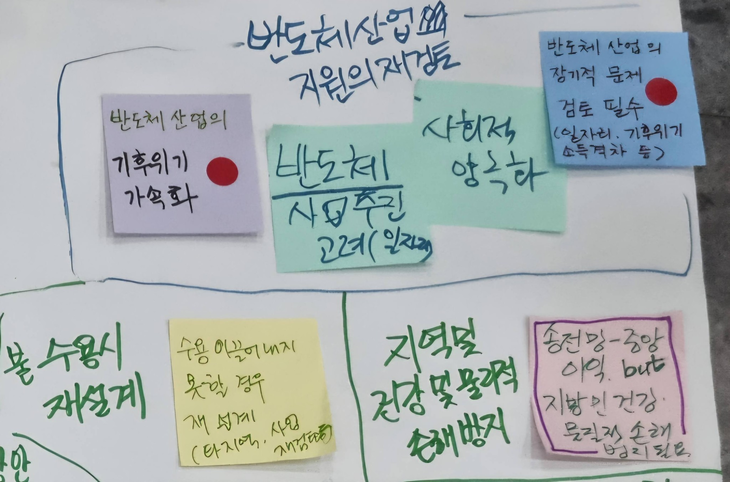 반도체 산업
지원의 재검토
반도체 산업의
기후위기
가속화
반도체
사업 추진
고려(일자리)
사회적
양극화
반도체 산업의
장기적 문제
검토 필수
(일자리·기후위기
소득격차 등)
불 수용시
재설계
수용 이끌어내지
못할 경우
재설계
(타지역·사업
재검토등)
지역민
건강 및 물리적
손해방지
송전망-중앙
이익. but
지방민 건강·
물질적 손해
방지 필요
방안